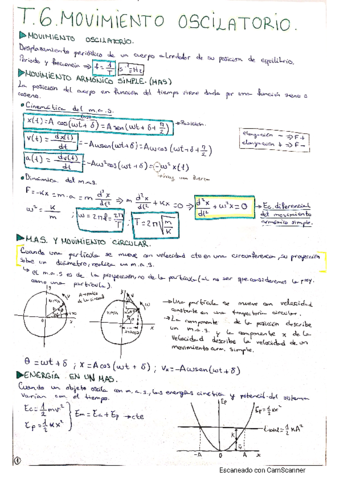 T.6. MOVIMIENTO OSCILATORIO.
▶MOVIMIENTO OSCILATORIO.
Desplazamiento periódico de un cuerpo alrededor de su posición de equilibrio.
Periodo y frecuencia ⇒ f = 1/T
▶MOVIMIENTO ARMÓNICO SIMPLE (MAS)
La posición del cuerpo en función del tiempo viene dada por una función seno o
coseno.
• Cinemática del m.a.s.
x(t) = A cos(ωt+δ) = A sen(ωt+δ+π/2) → Posición
v(t) = dx(t)/dt = -Aω sen(ωt+δ) = Aω cos(ωt+δ+π/2)
a(t) = dv(t)/dt = -Aω² cos(ωt+δ) = -ω² x(t)
• Dinámica del m.a.s.
F = -Kx = m·a = m d²x/dt² ⇒ m d²x/dt² + Kx = 0 ⇒ d²x/dt² + ω²x = 0 → Ec. diferencial
del movimiento
armónico simple.
ω² = K/m ; ω = 2πf = 2π/T ; T = 2π√(m/K)
▶M.A.S. Y MOVIMIENTO CIRCULAR.
Cuando una partícula se mueve con velocidad cte en una circunferencia, su proyección
sobre un diámetro realiza un m.a.s.
↳ el m.a.s. es de la proyección, no de la partícula (al no ser que consideremos la proy.
como una partícula).
→ Una partícula se mueve con velocidad
constante en una trayectoria circular.
→ La componente x de la posición describe
un m.a.s. y la componente x de la
velocidad describe la velocidad de un
movimiento arm. simple.
θ = ωt + δ ; x = A cos(ωt + δ) ; Vx = -Aω sen(ωt+δ)
▶ENERGÍA EN UN MAS.
Cuando un objeto oscila con m.a.s., las energías cinética y potencial del sistema
varían con el tiempo.
Ec = 1/2 mv²
Ep = 1/2 Kx²
Em = Ec + Ep → cte
Ep
Ep = 1/2 Kx²
Etotal = 1/2 KA²
-A
A
x
①
Escaneado con CamScanner